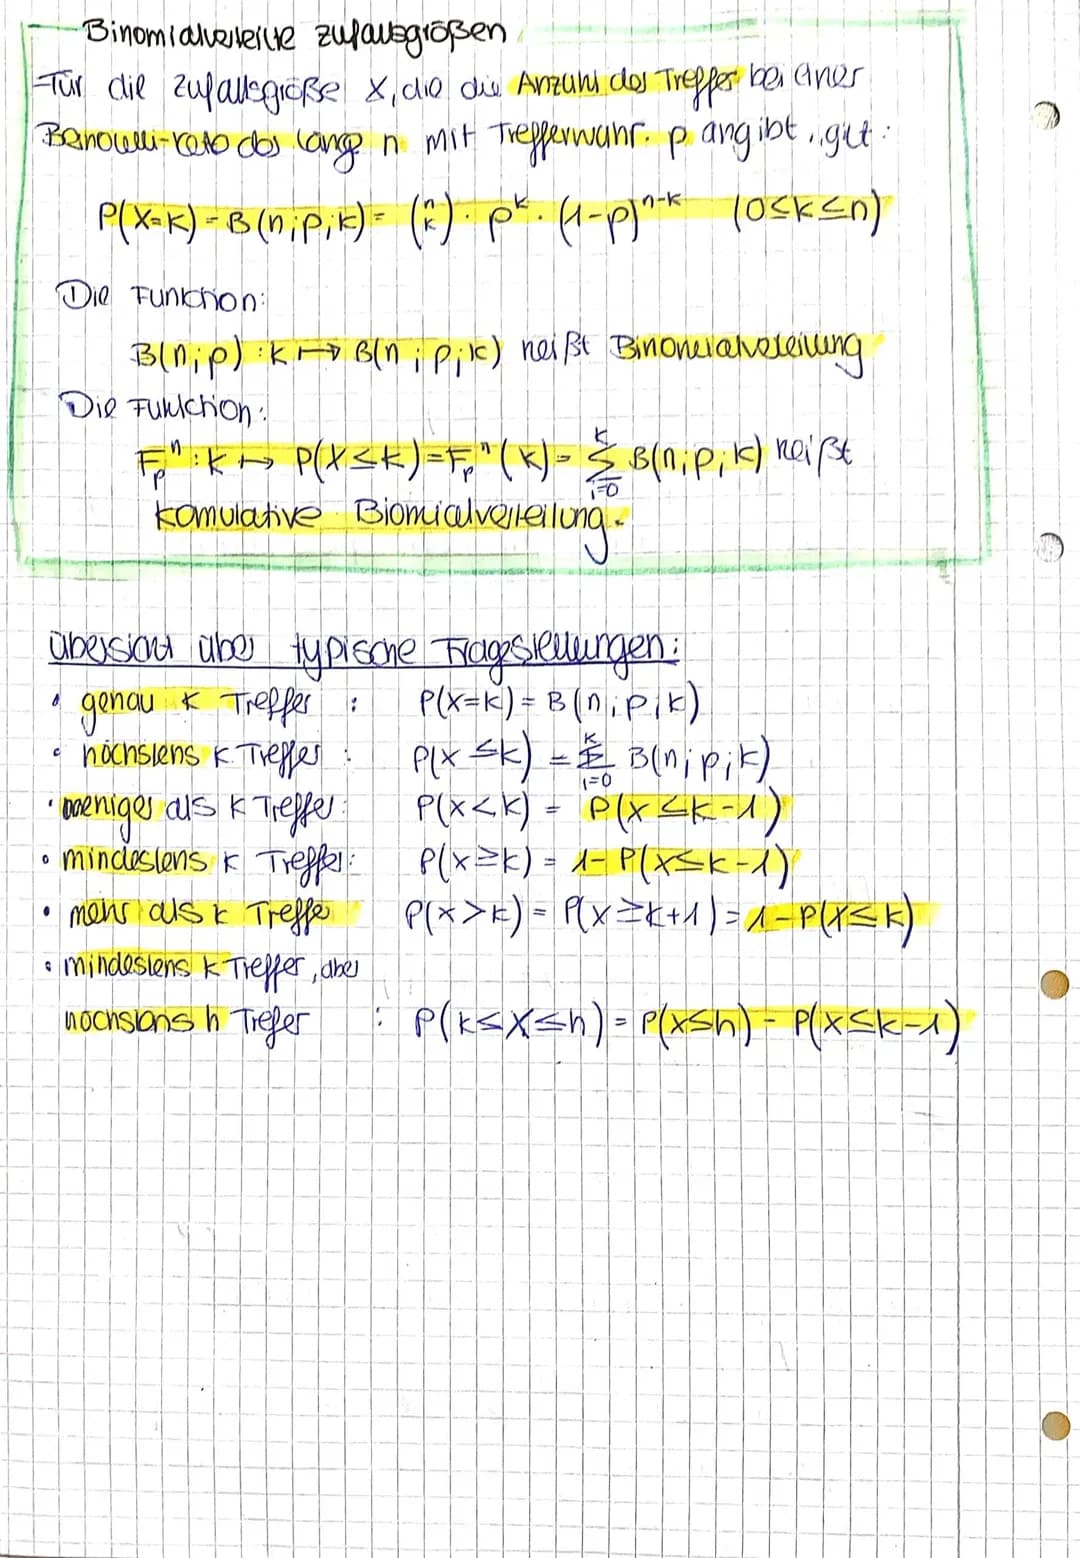 Binomialverteilte Zufallsgrößen
Für die Zufallsgröße X, die die Anzahl der Treffer bei einer
Bernoulli-Kette der Länge n mit Trefferwahr. p angibt, gilt:
P(X=k) = B(n;p;k) = (n k) · p^k · (1-p)^n-k (0≤k≤n)
Die Funktion:
B(n;p) : k ↦ B(n;p;k) heißt Binomialverteilung
Die Funktion:
F_p^n : k ↦ P(X≤k) = F_p^n(k) = Σ_{i=0}^{k} B(n;p;k) heißt
komulative Biomialverteilung.
übersicht über typische Fragestellungen:
• genau k Treffer : P(X=k) = B(n;p;k)
• höchstens k Treffer : P(X≤k) = Σ_{i=0}^{k} B(n;p;k)
• weniger als k Treffer: P(X<k) = P(X≤k-1)
• mindestens k Treffer: P(X≥k) = 1-P(X≤k-1)
• mehr als k Treffer P(X>k) = P(X≥k+1) = 1-P(X≤k)
• mindestens k Treffer, aber
höchstens h Trefer : P(k≤X≤h) = P(X≤h) - P(X≤k-1)